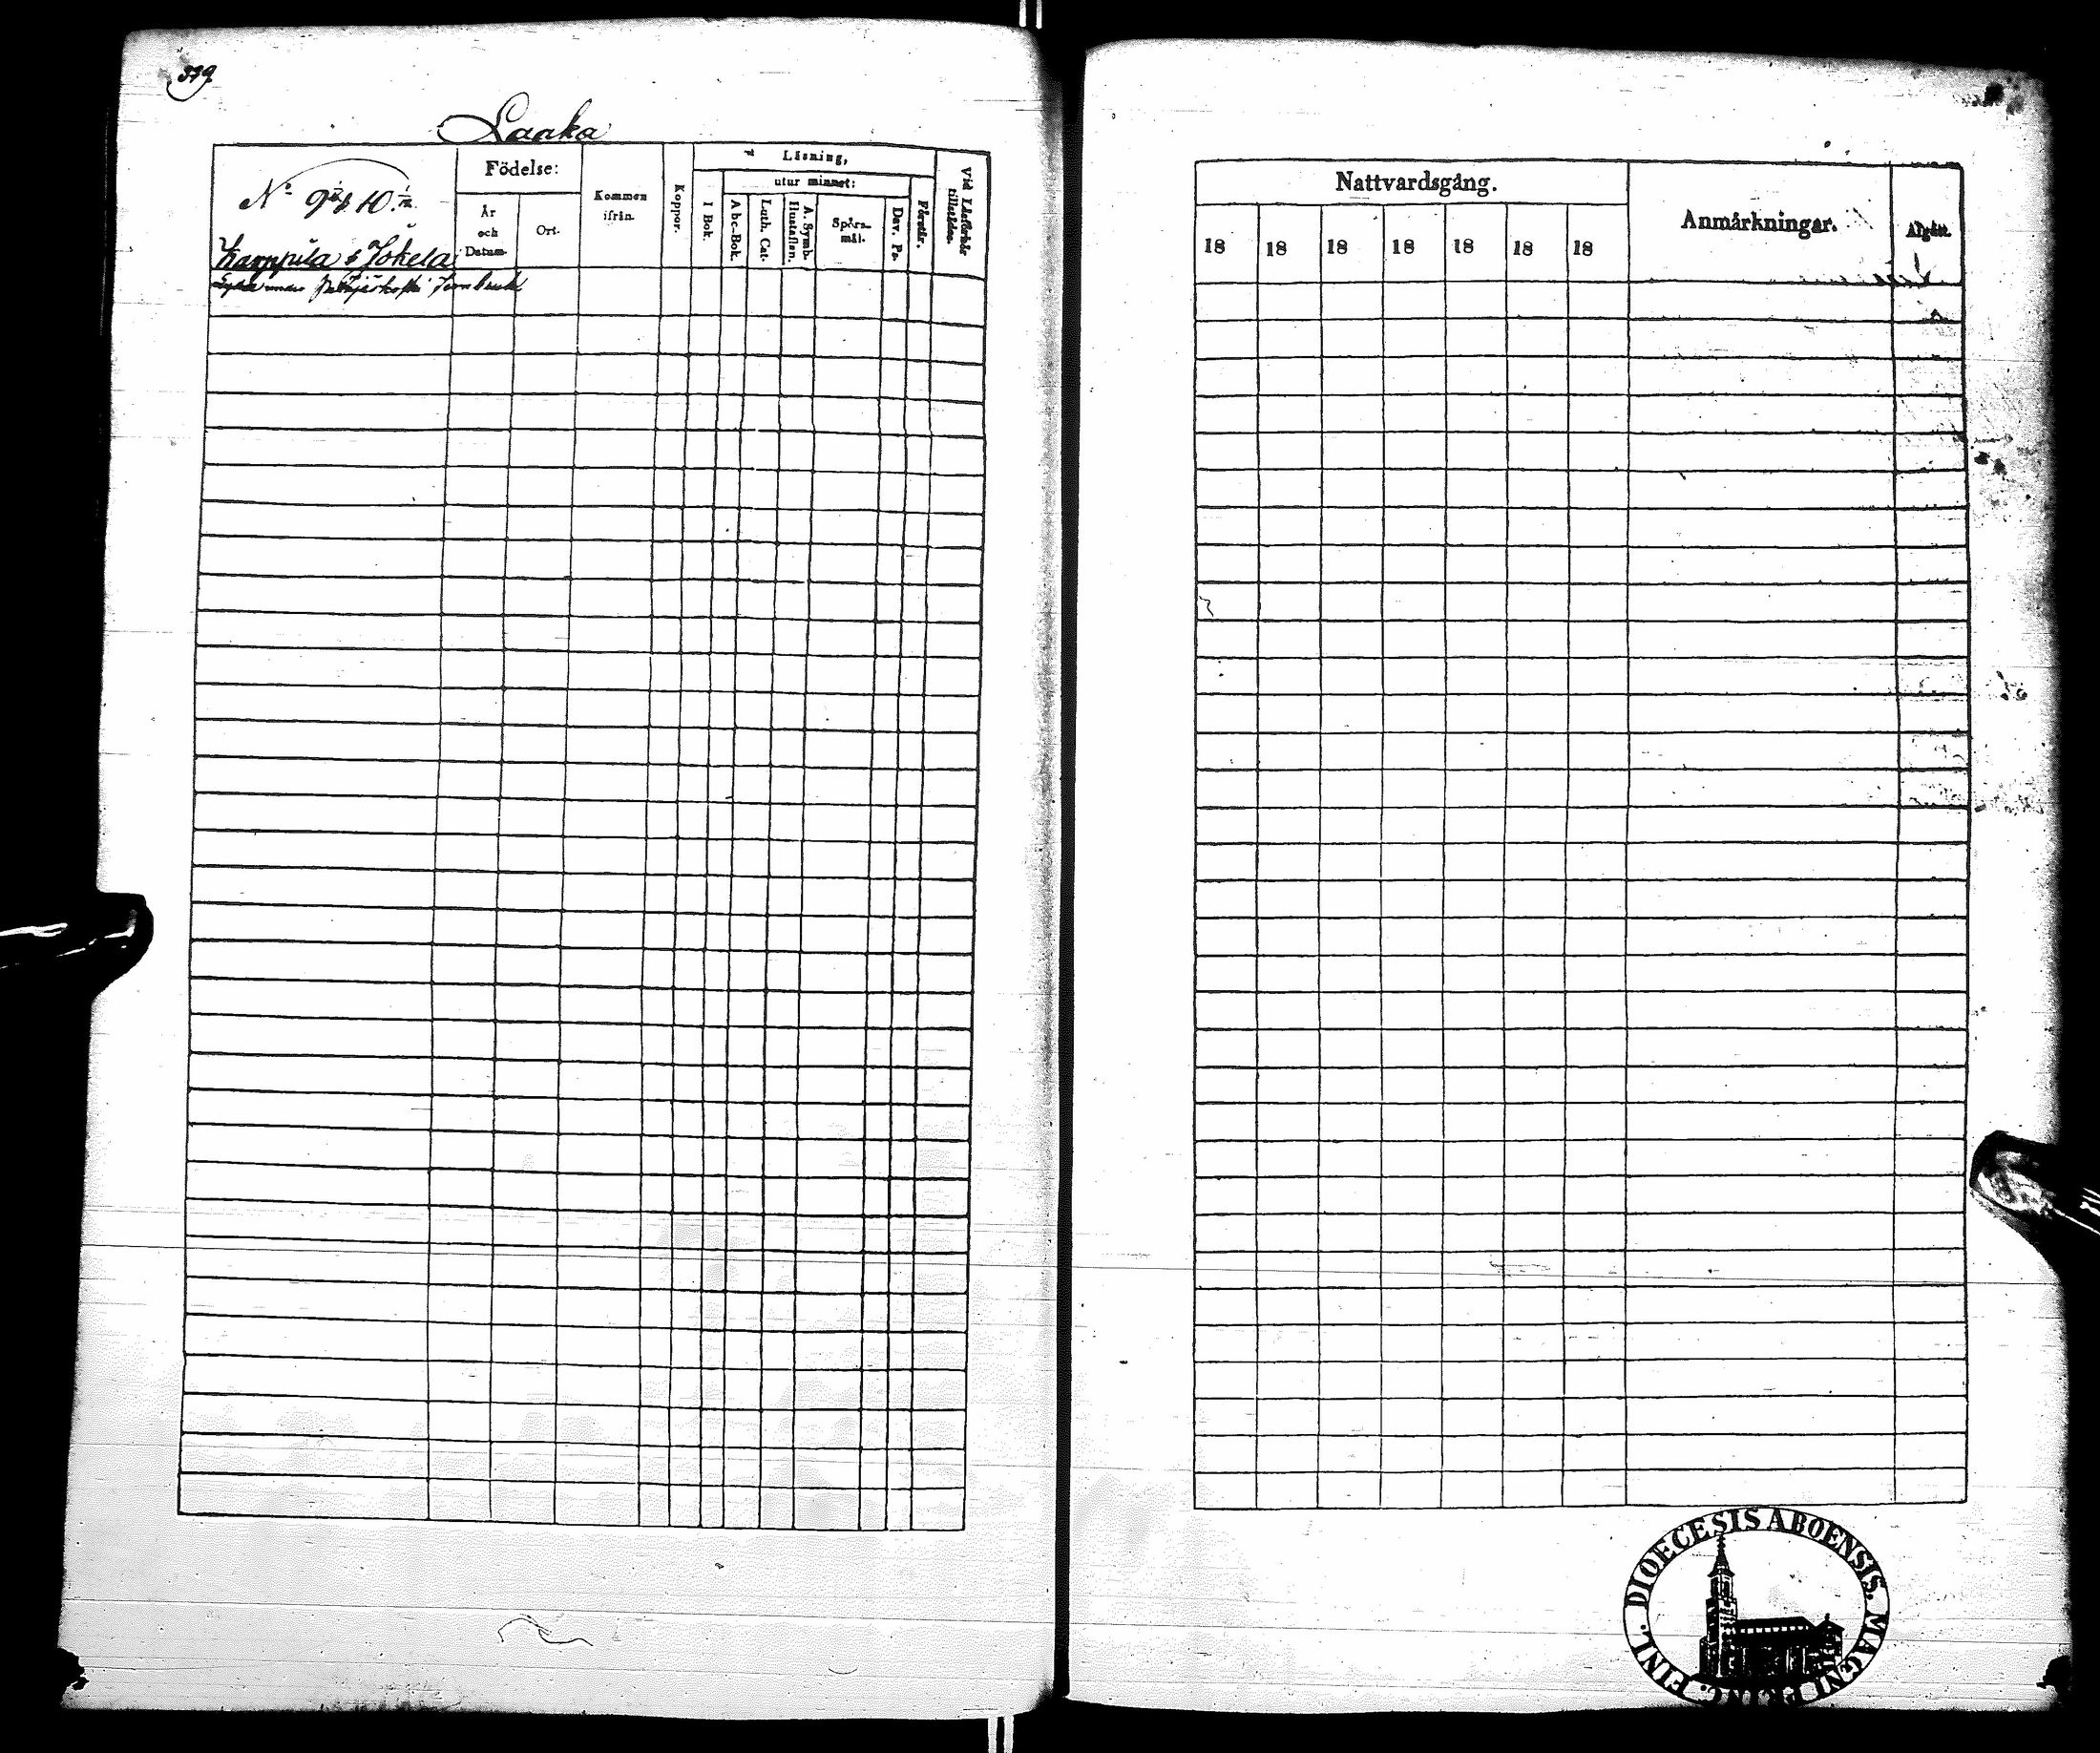 379.
Laaka
No 9 & 10
Kamppila & Jokela
Födelse:
År och Datum.
Ort.
Kommen ifrån.
Koppor.
Läsning,
I Bok.
utur minnet:
Abc-Bok.
Luth. Cat.
A. Symb. Hustaflan.
Spörs-mål.
Dav. Ps.
Förstår.
Vid Läsförhör tillstädes.
Nattvardsgång.
18 18 18 18 18 18 18
Anmärkningar.
Afgått.
DIOECESIS ABOENSIS. MAGNI PRINC. FINL.